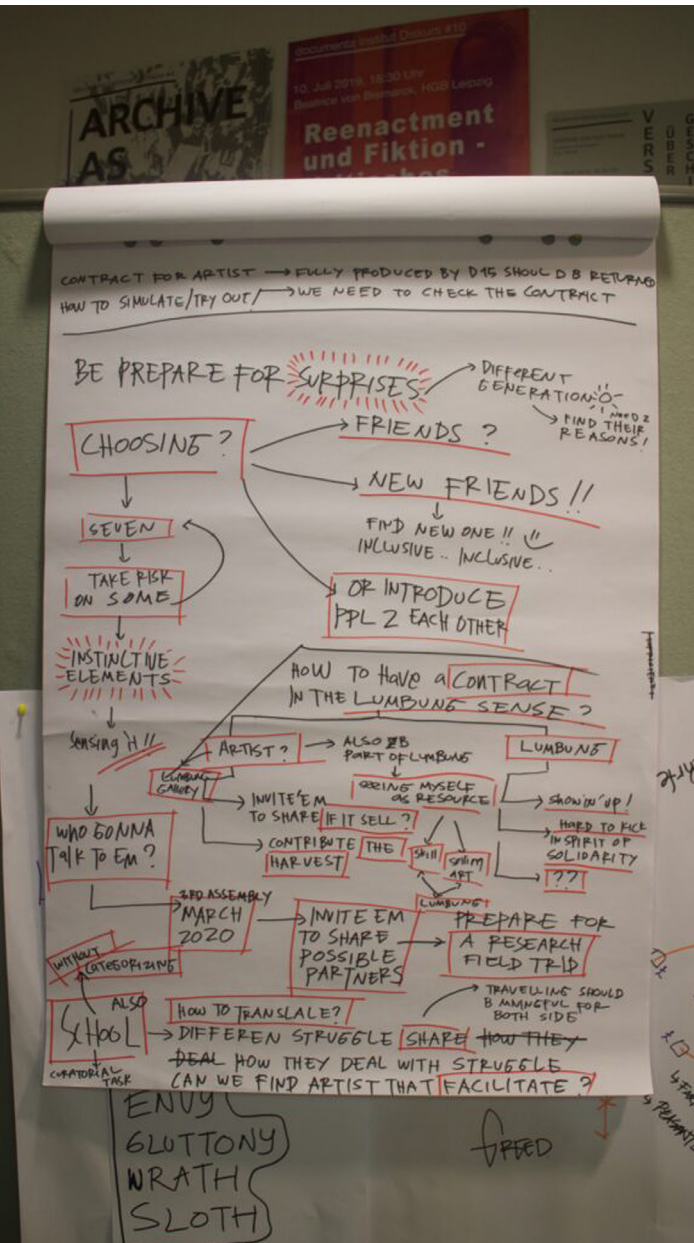 ARCHIVE
AS
documenta Institut Diskurs #10
10. Juli 2019, 18:30 Uhr
Beatrice von Bismarck, HGB Leipzig
Reenactment
und Fiktion -
VERS
ÜBER
GESCH
CONTRACT FOR ARTIST → FULLY PRODUCED BY D15 SHOULD B RETURNED
HOW TO SIMULATE/TRY OUT/ → WE NEED TO CHECK THE CONTRACT
BE PREPARE FOR SURPRISES
DIFFERENT
GENERATION
NEED 2
FIND THEIR
REASONS!
CHOOSINE?
FRIENDS ?
NEW FRIENDS !!
FIND NEW ONE !!
INCLUSIVE.. INCLUSIVE..
OR INTRODUCE
PPL 2 EACH OTHER
SEVEN
TAKE RISK
ON SOME
INSTINCTIVE
ELEMENTS
Sensing it !!
WHO GONNA
TALK TO EM?
HOW TO HAVE a CONTRACT
IN THE LUMBUNG SENSE ?
ARTIST ? → ALSO B
PART OF LUMBUNG
LUMBUNG
GALLERY
SEEING MYSELF
AS RESOURCE
INVITE'EM
TO SHARE IF IT SELL ?
CONTRIBUTE THE
HARVEST
Skill
Sellin
ART
LUMBUNG
LUMBUNG
Showin' up!
HARD TO KICK
IN SPIRIT OF
SOLIDARITY
??
3RD ASSEMBLY
MARCH
2020
INVITE EM
TO SHARE
POSSIBLE
PARTNERS
PREPARE FOR
A RESEARCH
FIELD TRIP
TRAVELLING SHOULD
B MNNGFUL FOR
BOTH SIDE
WITHOUT
CATEGORIZING
ALSO
SCHOOL
CURATORIAL
TASK
HOW TO TRANSLALE?
DIFFEREN STRUGGLE SHARE HOW THEY
DEAL HOW THEY DEAL WITH STRUGGLE
CAN WE FIND ARTIST THAT FACILITATE ?
ENVY
GLUTTONY
WRATH
SLOTH
GREED